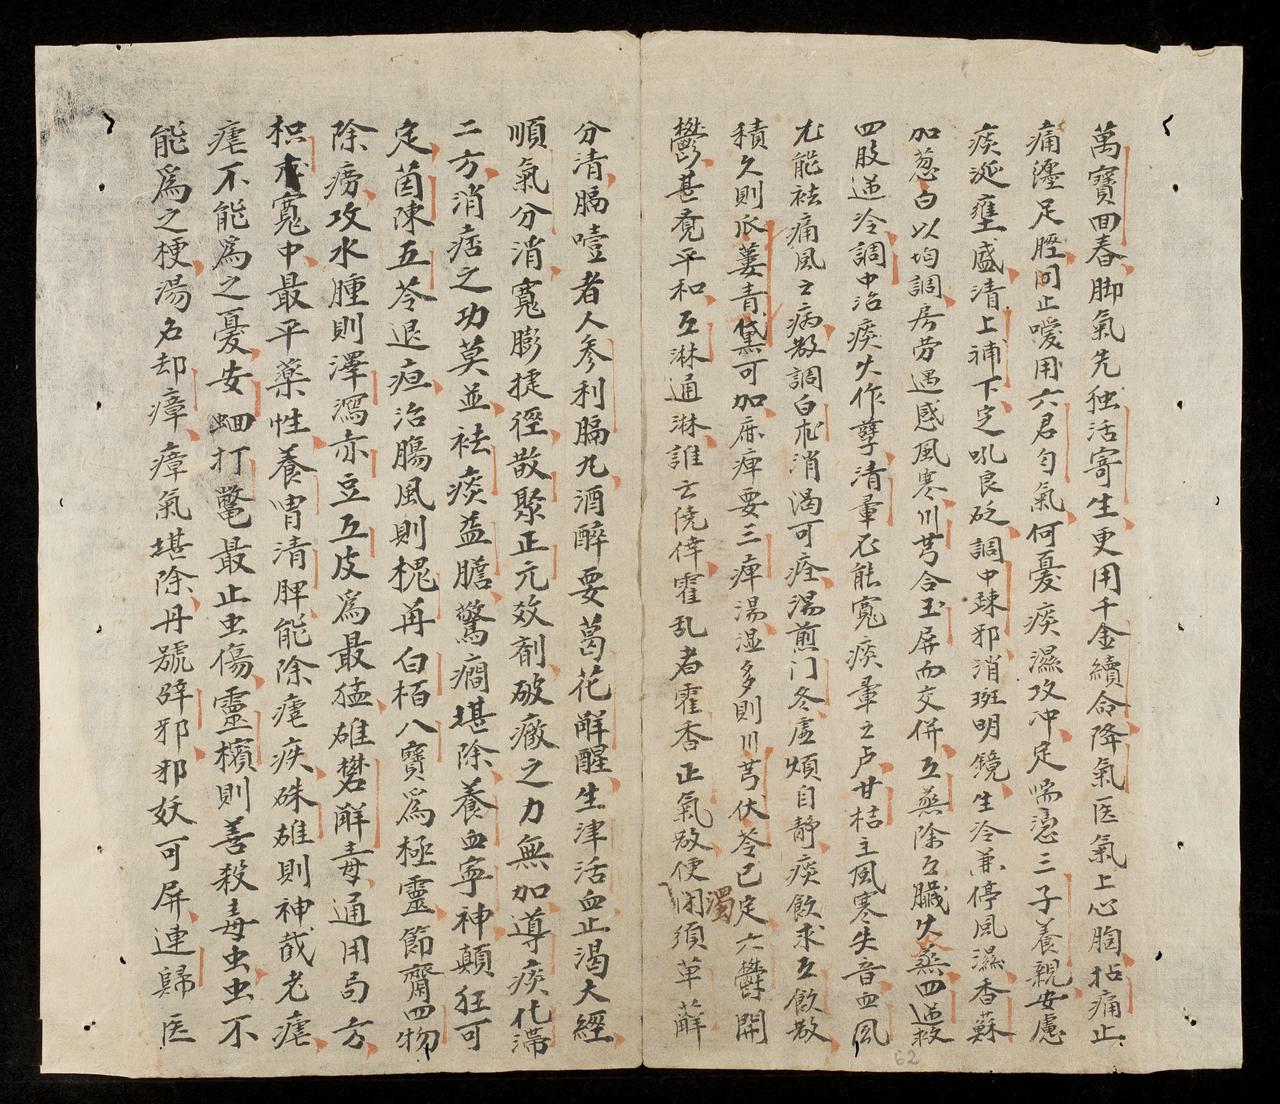 萬寶囬春脚氣先独活寄生更用千金續命降氣医氣上心胸拈痛止
痛瀍足脛间止噯用六君匀氣何憂痰濕攻冲定喘⿰三子養親安慮
痰涎壅盛清上補下定吼良砭調中疎邪消斑明鏡生冷兼停風濕香蘇
加葱白以均調房劳遇感風寒川芎合玉屏而交併五蒸除五臟火蒸四逆救
四肢逆冷調中治痰火作孽清暈化能寬痰暈之卢甘桔主風寒失音血風
尤能祛痛風之病散調白朮消渴可痊湯煎门冬虚煩自靜痰飲求五飲散
積久則瓜蔞青黛可加麻痺要三痺湯湿多則川芎伏苓已定六鬱開
鬱甚竟平和五淋通淋誰云僥倖霍乱者霍香正氣改便闭濁須萆薢
分清膈噎者人參利膈九酒醉要葛花解醒生津活血止渴大經
順氣分消寬膨捷徑散聚正元效劑破癥之力無加導痰化滯
二方消痞之功莫並祛痰益膽驚癎堪除養血寧神顛狂可
定茵陳五苓退疸治膓風則槐再白栢八寶爲極靈節齋四物
除癆攻水腫則澤瀉赤豆五皮爲最猛雄礬解毒通用局方
枳朮寬中最平藥性養胃清脾能除瘧疾硃雄則神截老瘧
瘧不能爲之憂安蛔打鱉最止虫傷靈檳則善殺毒虫虫不
能爲之梗湯名却瘴瘴氣堪除丹號辟邪邪妖可屏連歸医
62